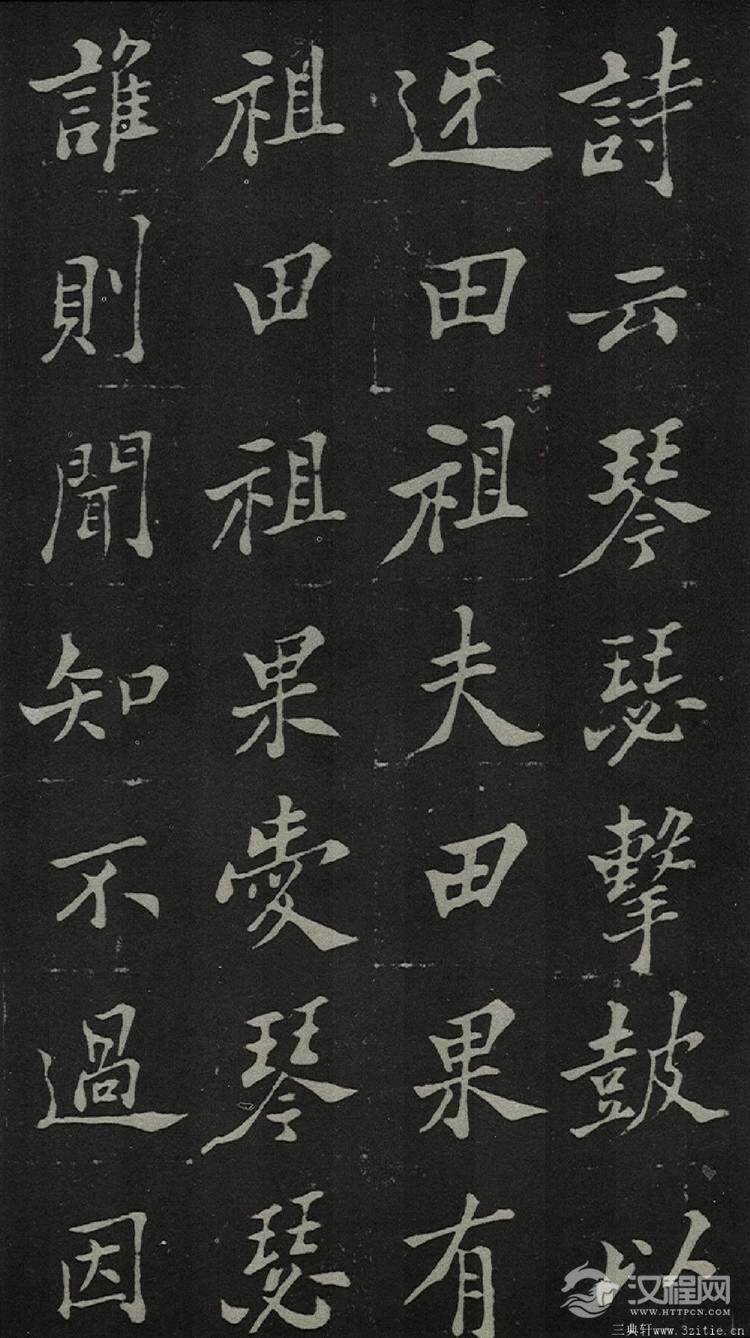 詩云琴瑟擊鼓以
迓田祖夫田果有
祖田祖果愛琴瑟
誰則聞知不過因
汉程网
WWW.HTTPCN.COM
三典轩www.3zitie.cn